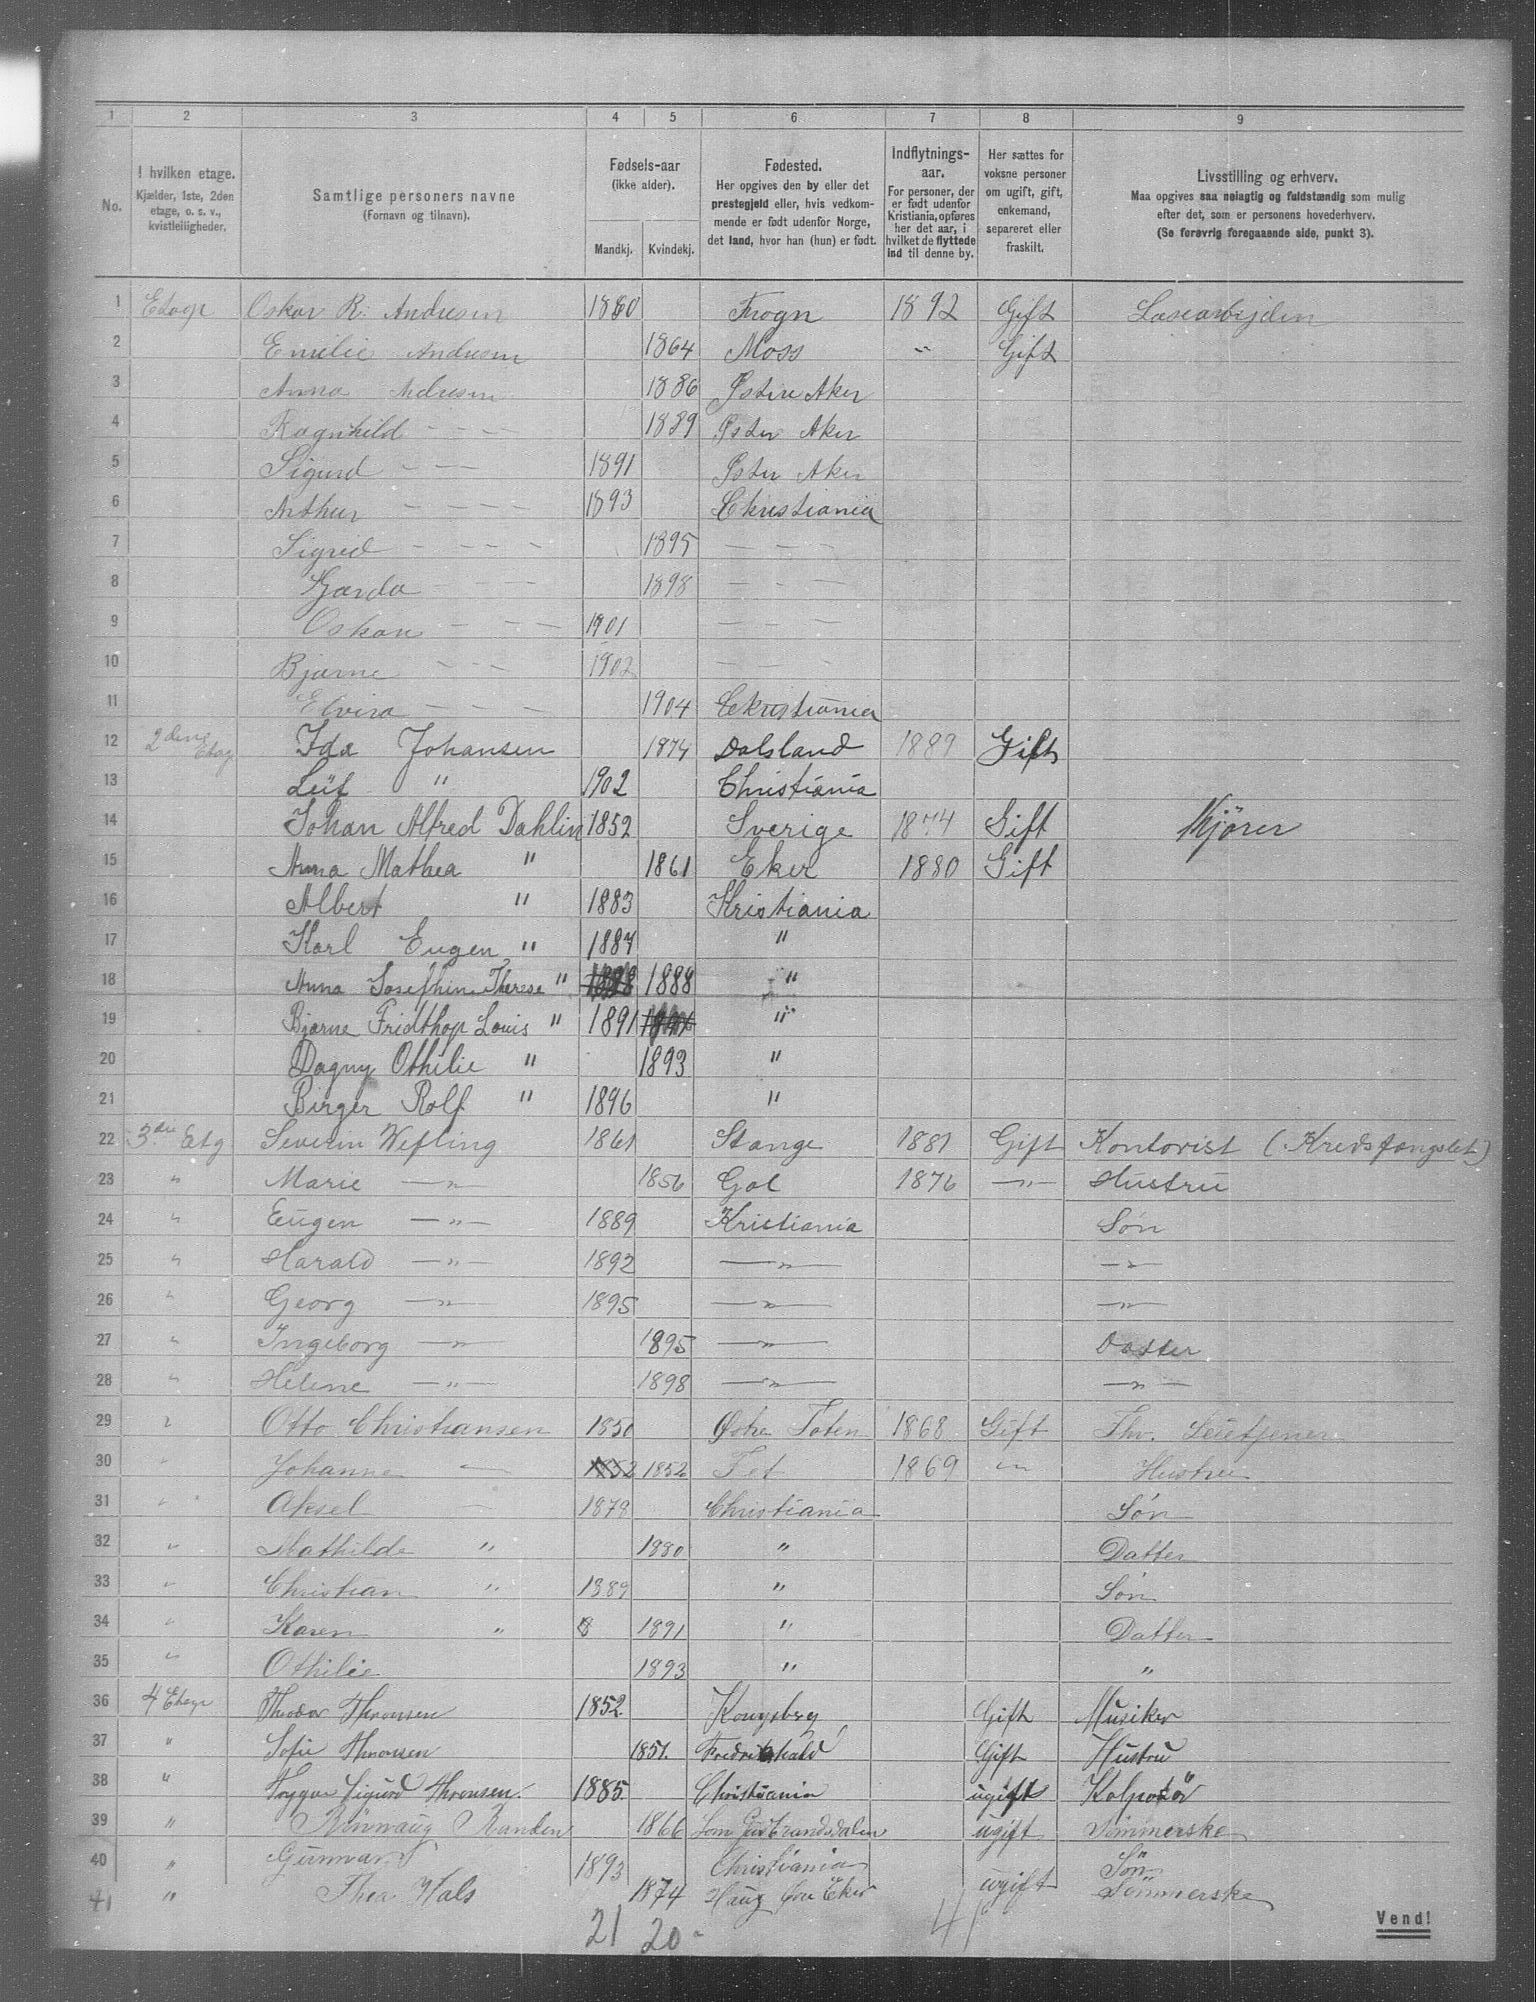 1 2 3 4 5 6 7 8 9
No. I hvilken etage. Kjælder, 1ste, 2den etage, o. s. v., kvistleiligheder. Samtlige personers navne (Fornavn og tilnavn). Fødsels-aar (ikke alder). Mandkj. Kvindekj. Fødested. Her opgives den by eller det prestegjeld eller, hvis vedkommende er født udenfor Norge, det land, hvor han (hun) er født. Indflytnings-aar. For personer, der er født udenfor Kristiania, opføres her det aar, i hvilket de flyttede ind til denne by. Her sættes for voksne personer om ugift, gift, enkemand, separeret eller fraskilt. Livsstilling og erhverv. Maa opgives saa nøiagtig og fuldstændig som mulig efter det, som er personens hovederhverv. (Se forøvrig foregaaende side, punkt 3).
1 Etage Oskar R. Andresen 1860 Frogn 1892 Gift Løsearbejden
2 Emilie Andresen 1864 Moss " Gift
3 Anna Andresen 1886 Østre Aker
4 Ragnhild - - - 1889 Øster Aker
5 Sigurd - - 1891 Øster Aker
6 Arthur - - - - 1893 Christiania
7 Sigrid - - - - 1895 - - -
8 Gjarda - - - - 1898 - - -
9 Oskar - - - 1901 - - -
10 Bjarne - - - 1902 - - -
11 Elvira - - - 1904 Christiania
12 2den Etag Ida Johansen 1874 Dalsland 1889 Gift
13 Leif " 1902 Christiania
14 Johan Alfred Dahlin 1852 Sverige 1874 Gift Kjører
15 Anna Mathea " 1861 Eker 1880 Gift
16 Albert " 1883 Kristiania
17 Karl Eugen " 1884 "
18 Anna Josefhine Therese " 1888 1888 "
19 Bjarne Fridthop Louis " 1891 1891 "
20 Dagny Othilie " 1893 "
21 Birger Rolf " 1896 "
22 3die Etg Severin Wefling 1861 Stange 1881 Gift Kontorist (Kredsfængslet)
23 " Marie —"— 1856 Gol 1876 —"— Hustru
24 " Eugen —"— 1889 Kristiania Søn
25 " Harald —"— 1892 —"— —"—
26 " Georg —"— 1895 —"— —"—
27 " Ingeborg —"— 1895 —"— Datter
28 " Helene —"— 1898 —"— —"—
29 " Otto Christiansen 1850 Østre Toten 1868 Gift
30 " Johanne — 1852 1852 Fet 1869 " Hustru
31 " Aksel — 1878 Christiania Søn
32 " Mathilde " 1880 " Datter
33 " Christian " 1889 " Søn
34 " Karen " 8 1891 " Datter
35 " Othilie 1893 " "
36 4 Etage Theodor Thronsen 1852 Kongsberg Gift Musiker
37 " Sofie Thronsen 1851. Fredrikshald Gift Hustru
38 " Trygve Sigurd Thronsen. 1885. Christiania ugift Kolportør
39 " Rönnaug Randen 1866 Lom Gudbrandsdalen ugift Sömmerske
40 " Gunnar 1893 Christiania Søn
41 " Thea Hals 1874 Haug Øvre Eker ugift Sömmerske
21 20 41
Vend!